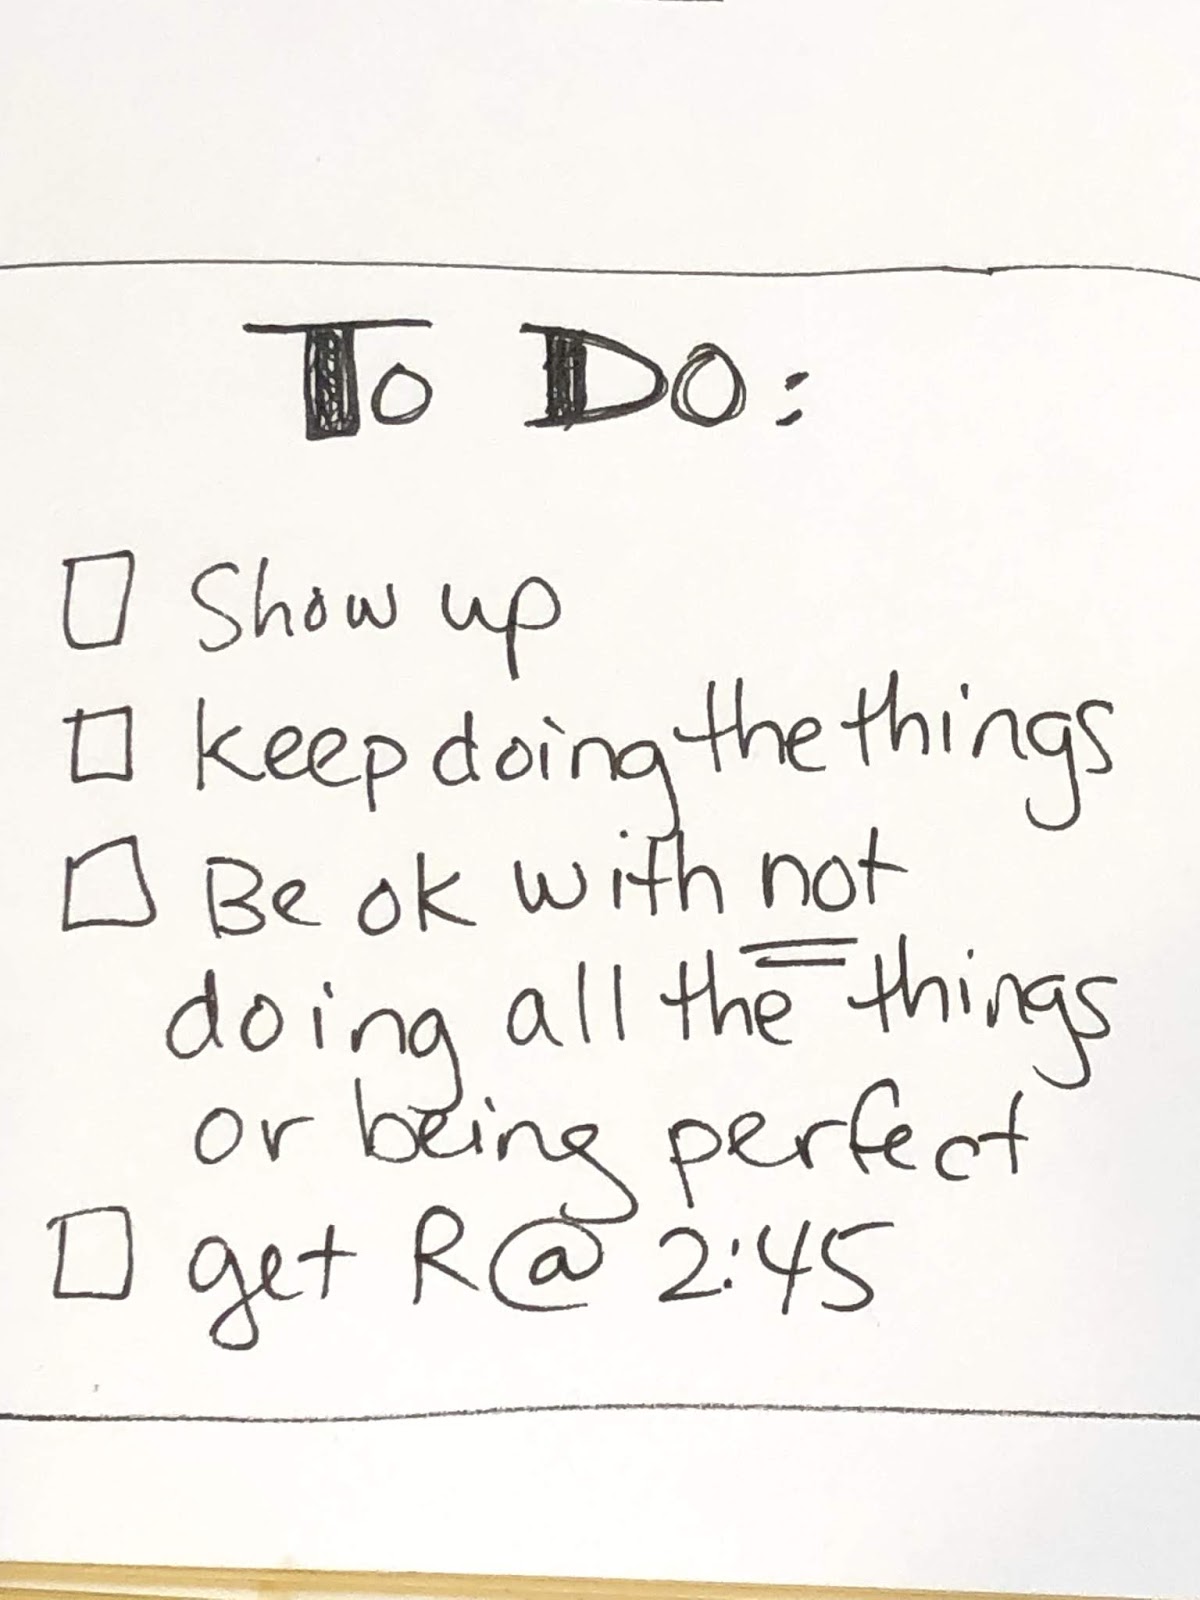 To Do:
Show up
keep doing the things
Be ok with not
doing all the things
or being perfect
get R @ 2:45